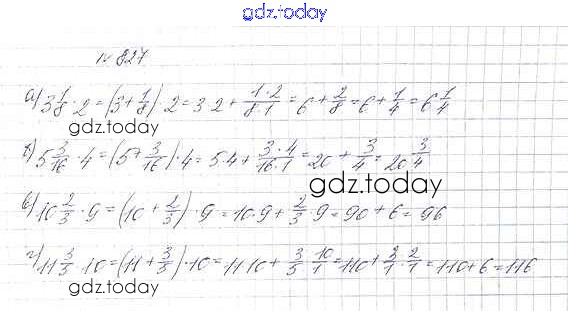 gdz.today
№ 827
а) 3 1/8 · 2 = (3 + 1/8) · 2 = 3 · 2 + 1·2/8·1 = 6 + 2/8 = 6 + 1/4 = 6 1/4
gdz.today
б) 5 3/16 · 4 = (5 + 3/16) · 4 = 5·4 + 3·4/16·1 = 20 + 3/4 = 20 3/4
gdz.today
в) 10 2/3 · 9 = (10 + 2/3) · 9 = 10·9 + 2/3 · 9 = 90 + 6 = 96
г) 11 3/5 · 10 = (11 + 3/5) · 10 = 11·10 + 3/5 · 10/1 = 110 + 3/1 · 2/1 = 110 + 6 = 116
gdz.today